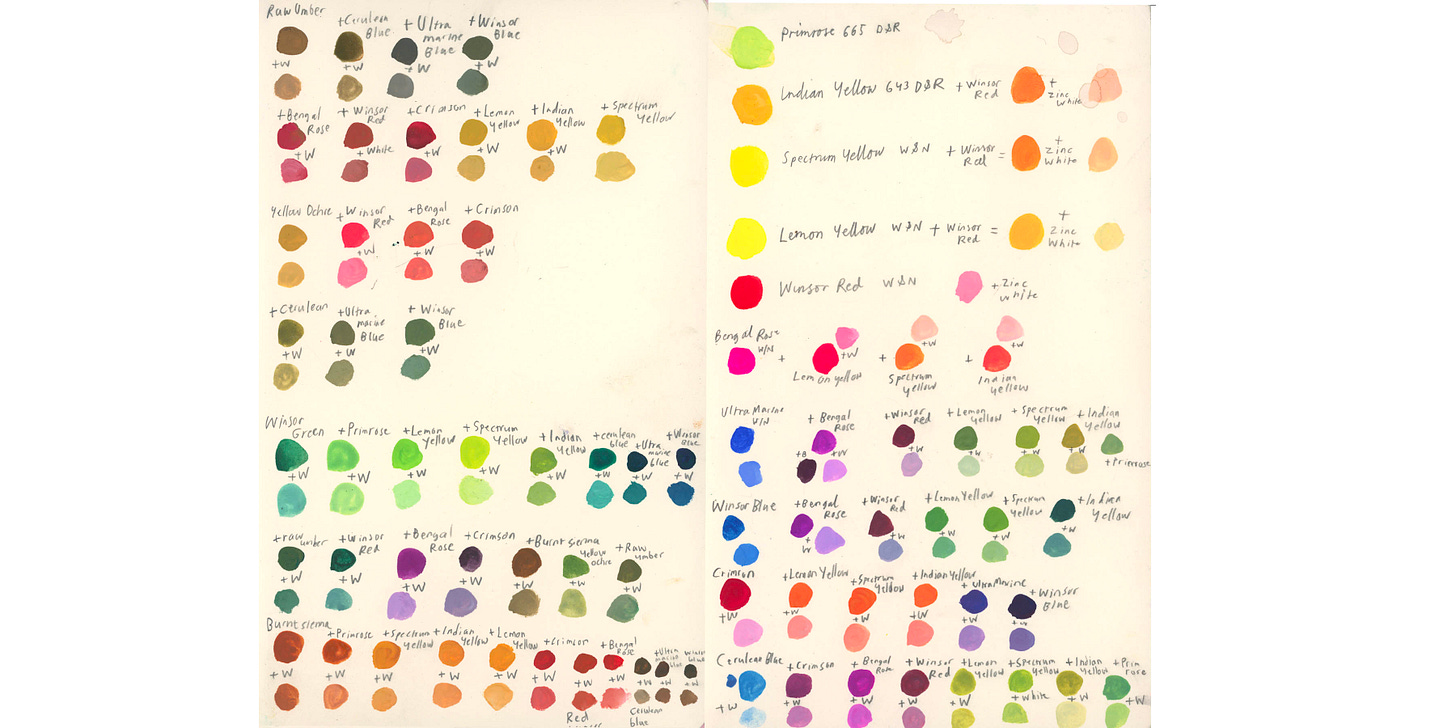 Raw Umber
+Cerulean Blue
+Ultra marine Blue
+Winsor Blue
+W +W +W
+Bengal Rose
+Winsor Red
+Crimson
+Lemon Yellow
+Indian Yellow
+Spectrum Yellow
+W +White +W +W +W
Yellow Ochre
+Winsor Red
+Bengal Rose
+Crimson
+W +W +W
+Cerulean
+Ultra marine Blue
+Winsor Blue
+W +W +W
Winsor Green
+Primrose
+Lemon Yellow
+Spectrum Yellow
+Indian Yellow
+cerulean blue
+Utra marine blue
+Winsor Blue
+W +W +W +W +W +W +W +W
+raw umber
+Winsor Red
+Bengal Rose
+Crimson
+Burnt sienna
Yellow ochre
+Raw umber
+W +W +W +W +W +W +W
Burnt sienna
+Primrose
+Spectrum Yellow
+Indian Yellow
+Lemon Yellow
+Crimson
+Bengal Rose
+Ultra marine blue
+W +W +W +W +W +W +W +W +W +W
Red
Cerulean blue
Primrose 665 D&R
Indian Yellow 643 D&R +Winsor Red + Zinc White
Spectrum Yellow W&N + Winsor Red = + Zinc White
Lemon Yellow W&N + Winsor Red = + Zinc White
Winsor Red W&N + Zinc White
Bengal Rose W/N
+ Lemon yellow +W
+ Spectrum yellow +W
+ Indian yellow +W
UltraMarine W/N
+ Bengal Rose
+Winsor Red
+Lemon Yellow
+Spectrum Yellow
+Indian Yellow
+Primrose
+B +W +W +W +W +W
Winsor Blue
+Bengal Rose
+Winsor Red
+Lemon Yellow
+Spectrum Yellow
+Indian Yellow
+W +W +W +W +W
Crimson
+Lemon Yellow
+Spectrum Yellow
+Indian Yellow
+UltraMarine
+Winsor Blue
+W +W +W +W +W +W
Cerulean Blue
+Crimson
+Bengal Rose
+Winsor Red
+Lemon Yellow
+Spectrum Yellow
+Indian Yellow
+Prim rose
+W +W +W +W +W +white +W +W